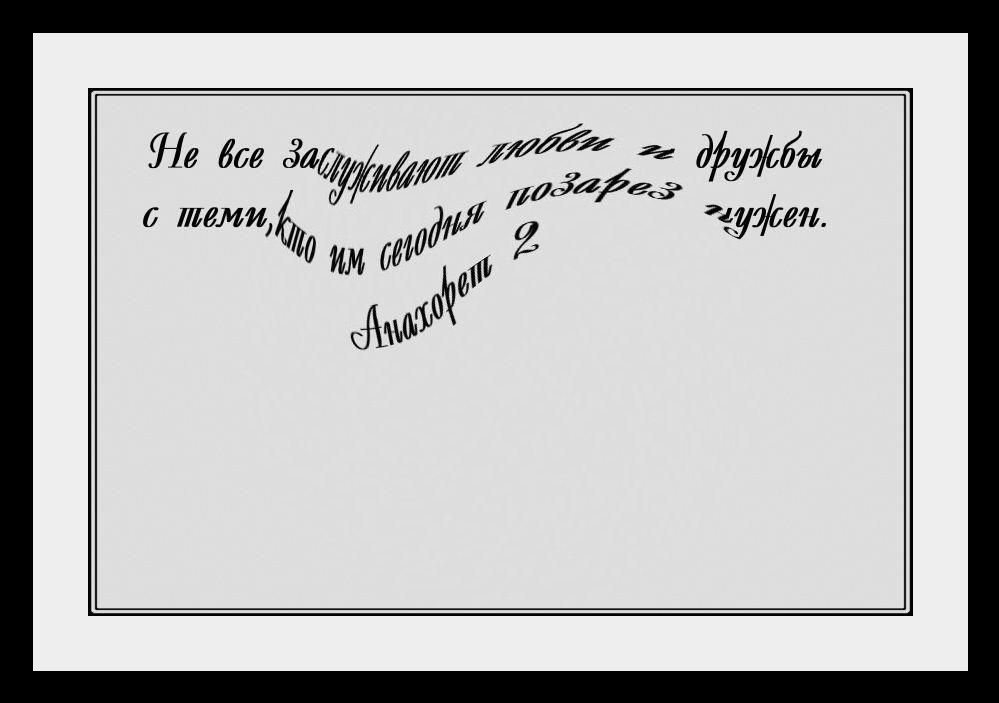 Не все заслуживают любви и дружбы
с теми,кто им сегодня позарез нужен.
Анахорет 2